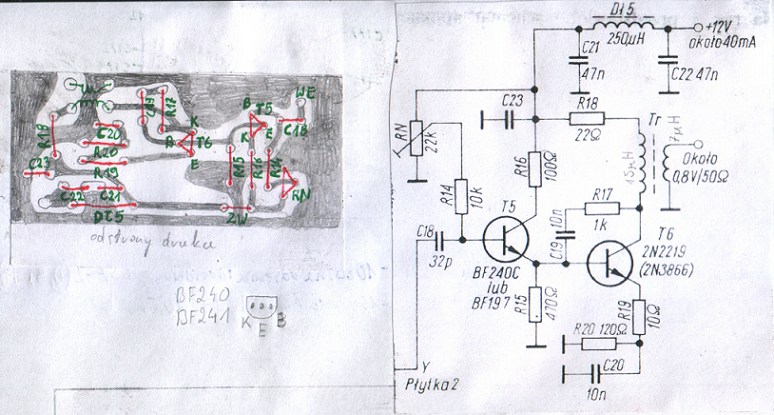 WE
B
T5
C19
R17
K
K
E
C18
R18
C20
B
T6
R20
E
R15
R16
R14
C23
R19
RN
C22
C21
Dł5
ZW
od strony druku
BF240
BF241
K
E
B
Dł 5
250µH
+12V
około 40mA
C21
47n
C22 47n
C23
R18
22Ω
Tr
7µH
RN
22k
R16
100Ω
15µH
Około
0,8V/50Ω
R14
10k
R17
1k
T5
C18
32p
10n
C19
T6
2N2219
(2N3866)
BF240C
lub
BF197
R15
470Ω
R19
10Ω
R20 120Ω
C20
10n
Y
Płytka 2